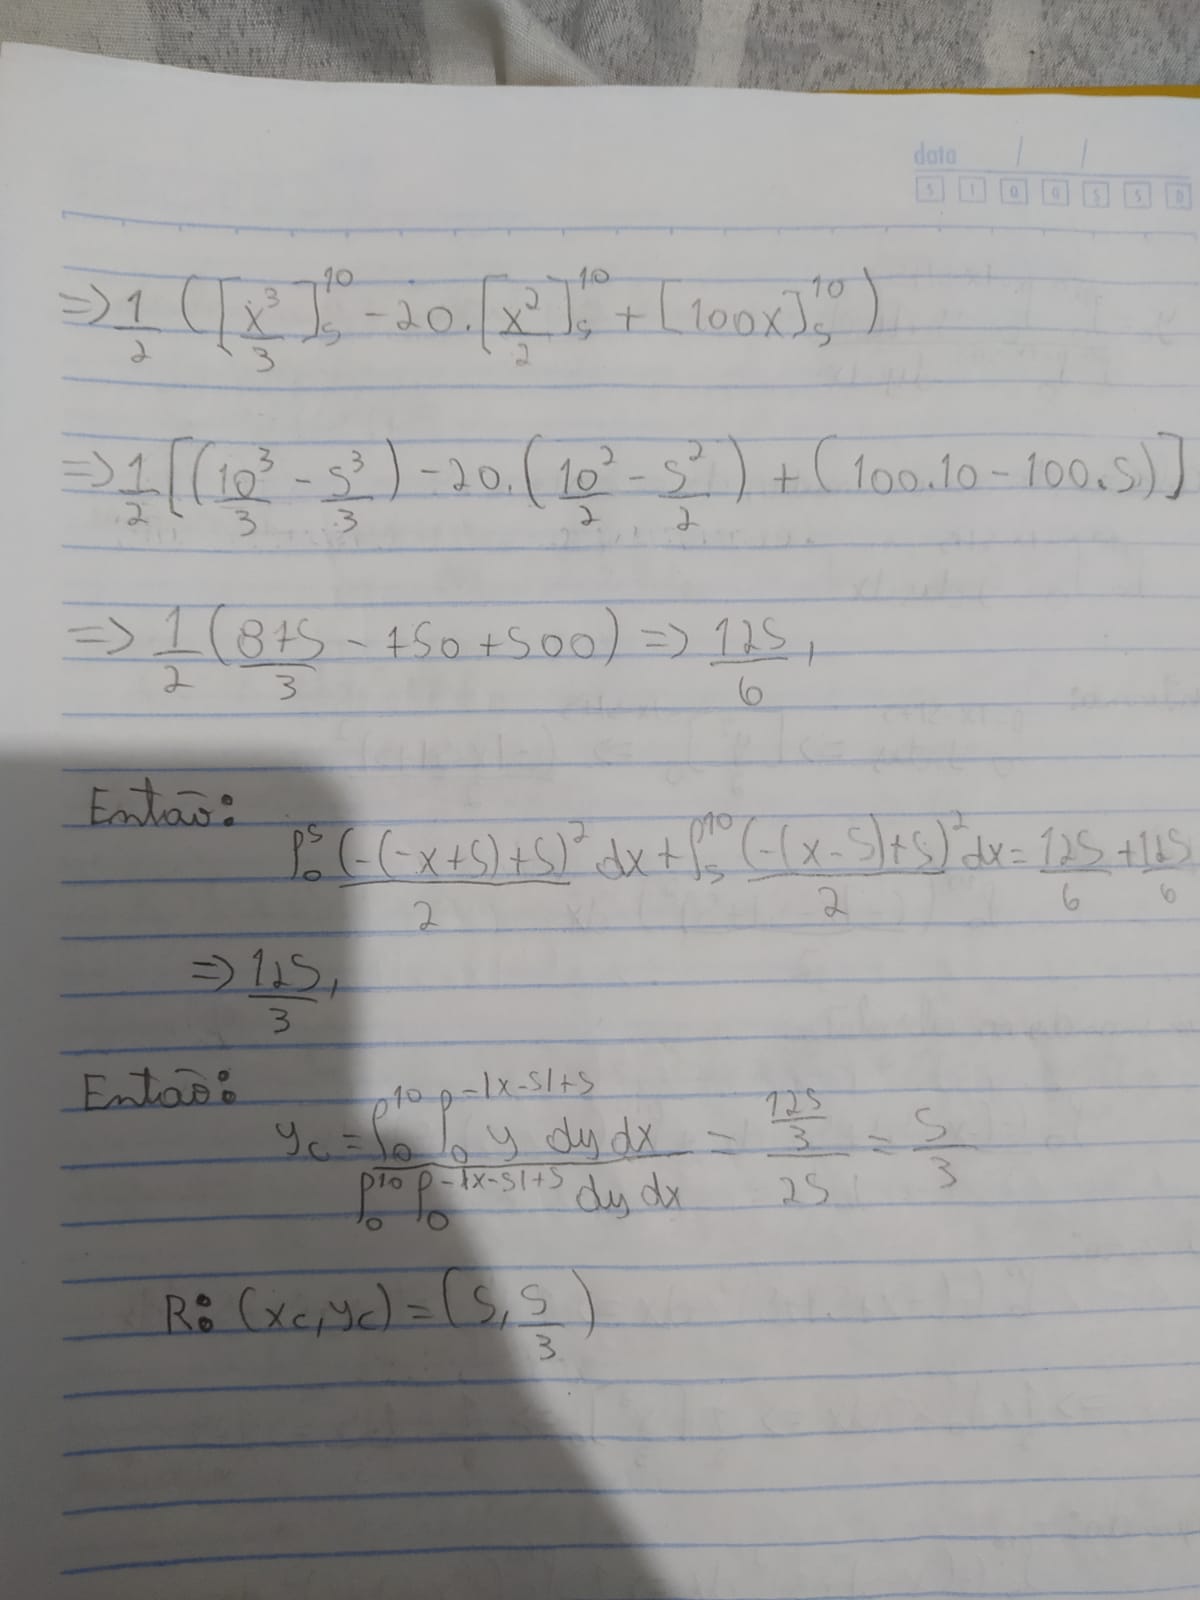 data / /
S T Q Q S S D
=> 1/2 ([x³/3]₅¹⁰ - 20.[x²/2]₅¹⁰ + [100x]₅¹⁰)
=> 1/2 [(10³/3 - 5³/3) - 20.(10²/2 - 5²/2) + (100.10 - 100.5)]
=> 1/2 (875/3 - 750 + 500) => 125/6,
Então:
∫₀⁵ (-(-x+5)+5)²/2 dx + ∫₅¹⁰ (-(x-5)+5)²/2 dx = 125/6 + 125/6
=> 125/3,
Então:
yc = ∫₀¹⁰ ∫₀^(-|x-5|+5) y dy dx / ∫₀¹⁰ ∫₀^(-|x-5|+5) dy dx = (125/3)/25 = 5/3
R: (xc, yc) = (5, 5/3)